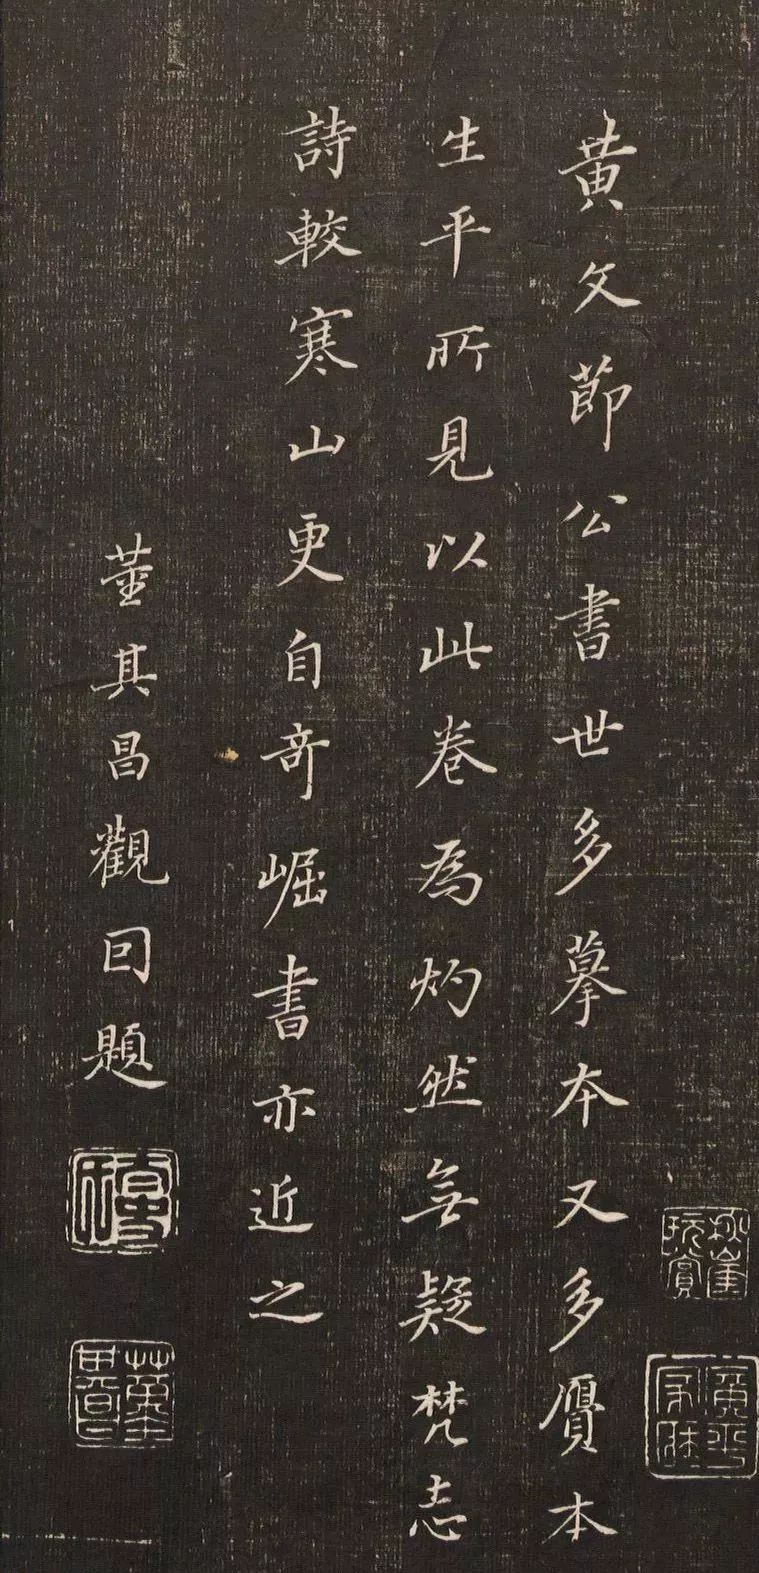 黄文節公書世多摹本又多贋本
生平所見以此卷為灼然無疑梵志
詩較寒山更自奇崛書亦近之
董其昌觀囙題
秋崖玩賞